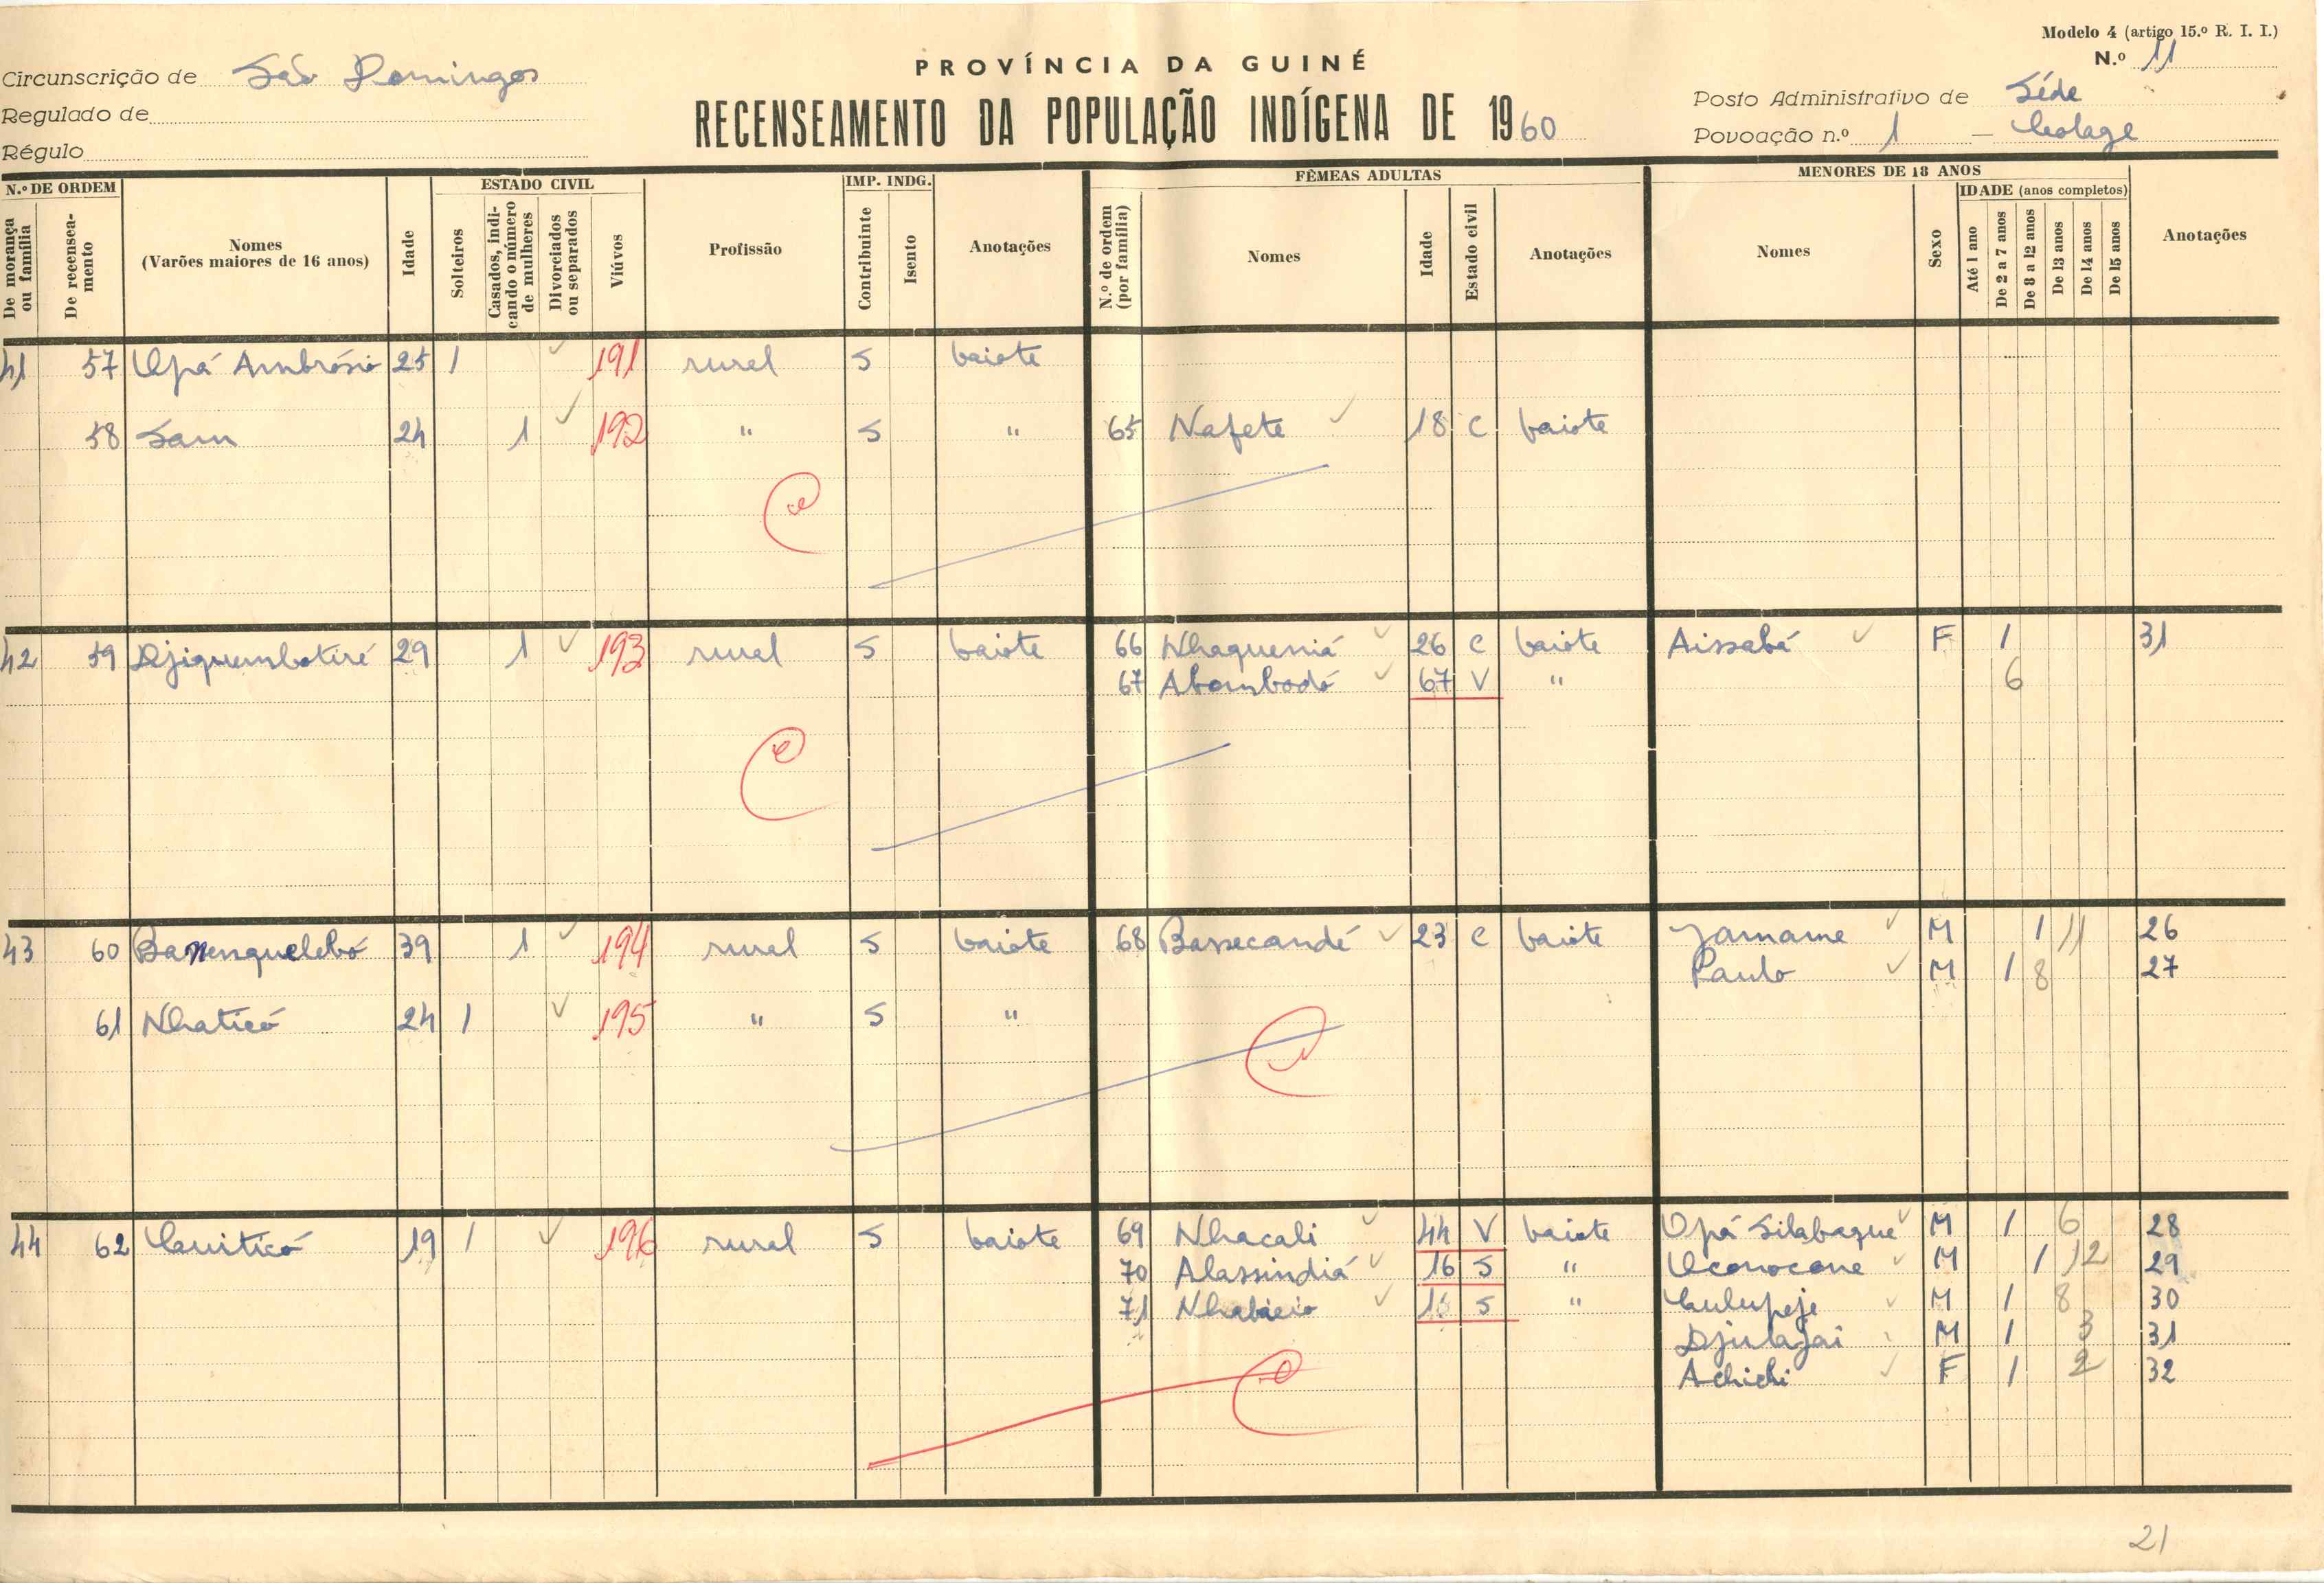 Modelo 4 (artigo 15.º R. I. I.)
N.º 11
PROVÍNCIA DA GUINÉ
RECENSEAMENTO DA POPULAÇÃO INDÍGENA DE 1960
Circunscrição de São Domingos
Regulado de
Régulo
Posto Administrativo de Séde
Povoação n.º 1 —
N.º DE ORDEM
De morança ou família
De recensea-mento
Nomes
(Varões maiores de 16 anos)
Idade
ESTADO CIVIL
Solteiros
Casados, indi-cando o número de mulheres
Divorciados ou separados
Viúvos
Profissão
IMP. INDG.
Contribuinte
Isento
Anotações
FÊMEAS ADULTAS
N.º de ordem (por família)
Nomes
Idade
Estado civil
Anotações
MENORES DE 18 ANOS
Nomes
Sexo
IDADE (anos completos)
Até 1 ano
De 2 a 7 anos
De 8 a 12 anos
De 13 anos
De 14 anos
De 15 anos
Anotações
41 57 Upá Ambrósio 25 1 191 rural S baiote
58 Sam 24 1 192 " S " 65 Nafete 18 C baiote
42 59 Djiquumbotiré 29 1 193 rural S baiote 66 Nhaqueniá 26 C baiote Aissabá F 1 31
67 Abombodó 67 V " 6
43 60 Banenquelebó 39 1 194 rural S baiote 68 Bassecandé 23 C baiote Jamame M 1 11 26
Paulo M 1 8 27
61 Nhaticó 24 1 195 " S "
44 62 Cuiticó 19 1 196 rural S baiote 69 Nhacali 44 V baiote Upá Silabaque M 1 6 28
70 Alassindiá 16 S " Uconocone M 1 12 29
71 S " Culupeje M 1 8 30
Djulajai M 1 3 31
Achichi F 1 2 32
21